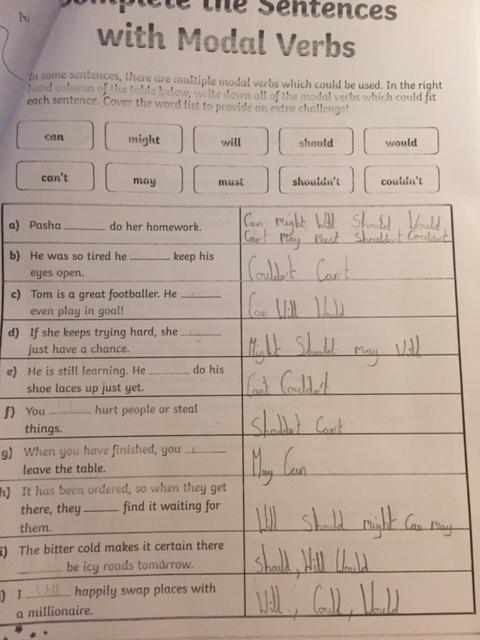 Complete the Sentences
with Modal Verbs
In some sentences, there are multiple modal verbs which could be used. In the right
hand column of the table below, write down all of the modal verbs which could fit
each sentence. Cover the word list to provide an extra challenge!
can might will should would
can't may must shouldn't couldn't
a) Pasha ______ do her homework. Can Might Will Should Would
Can't May Must Shouldn't Couldn't
b) He was so tired he ______ keep his
eyes open. Couldn't Can't
c) Tom is a great footballer. He ______
even play in goal! Can Will Would
d) If she keeps trying hard, she ______
just have a chance. Might Should may Will
e) He is still learning. He ______ do his
shoe laces up just yet. Can't Couldn't
f) You ______ hurt people or steal
things. Shouldn't Can't
g) When you have finished, you ______
leave the table. May Can
h) It has been ordered, so when they get
there, they ______ find it waiting for
them. Will Should might Can may
i) The bitter cold makes it certain there
______ be icy roads tomorrow. Should, Will Would
j) I Will happily swap places with
a millionaire. Will, Could, Would